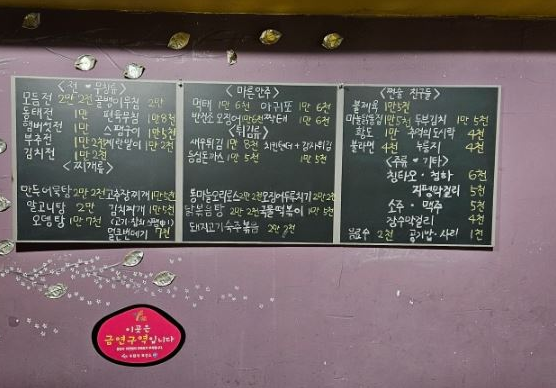 <전 · 무침류>
모듬전 2만 2천 골뱅이무침 2만
동태전 1만 편육무침 1만8천
햄버섯전 1만 스팸구이 1만5천
부추전 1만 계란말이 1만2천
김치전 1만2천
<찌개류>
만두어묵탕 2만2천 고추장찌개 1만5천
알고니탕 2만 김치찌개 1만5천
오뎅탕 1만 7천
얼큰번데기 7천
<마른안주>
먹태 1만 6천 아귀포 1만 6천
반건조 오징어 1만6천 짝태 1만 6천
<튀김류>
새우튀김 1만 8천 치킨텐더+감자튀김
등심돈까스 1만 5천 1만 5천
통마늘오리로스 2만2천 오징어두루치기 2만2천
닭볶음탕 2만 2천 국물떡볶이 1만 5천
돼지고기숙주볶음 2만 2천
<짠술 친구들>
불제육 1만5천
1만5천 두부김치 1만 5천
황도 1만 추억의도시락 4천
불라면 4천 누룽지 4천
<주류 · 기타>
침타오 · 청하 6천
지평막걸리 5천
소주 · 맥주 5천
장수막걸리 4천
음료수 2천 공기밥 · 사리 1천
이곳은
금연구역입니다